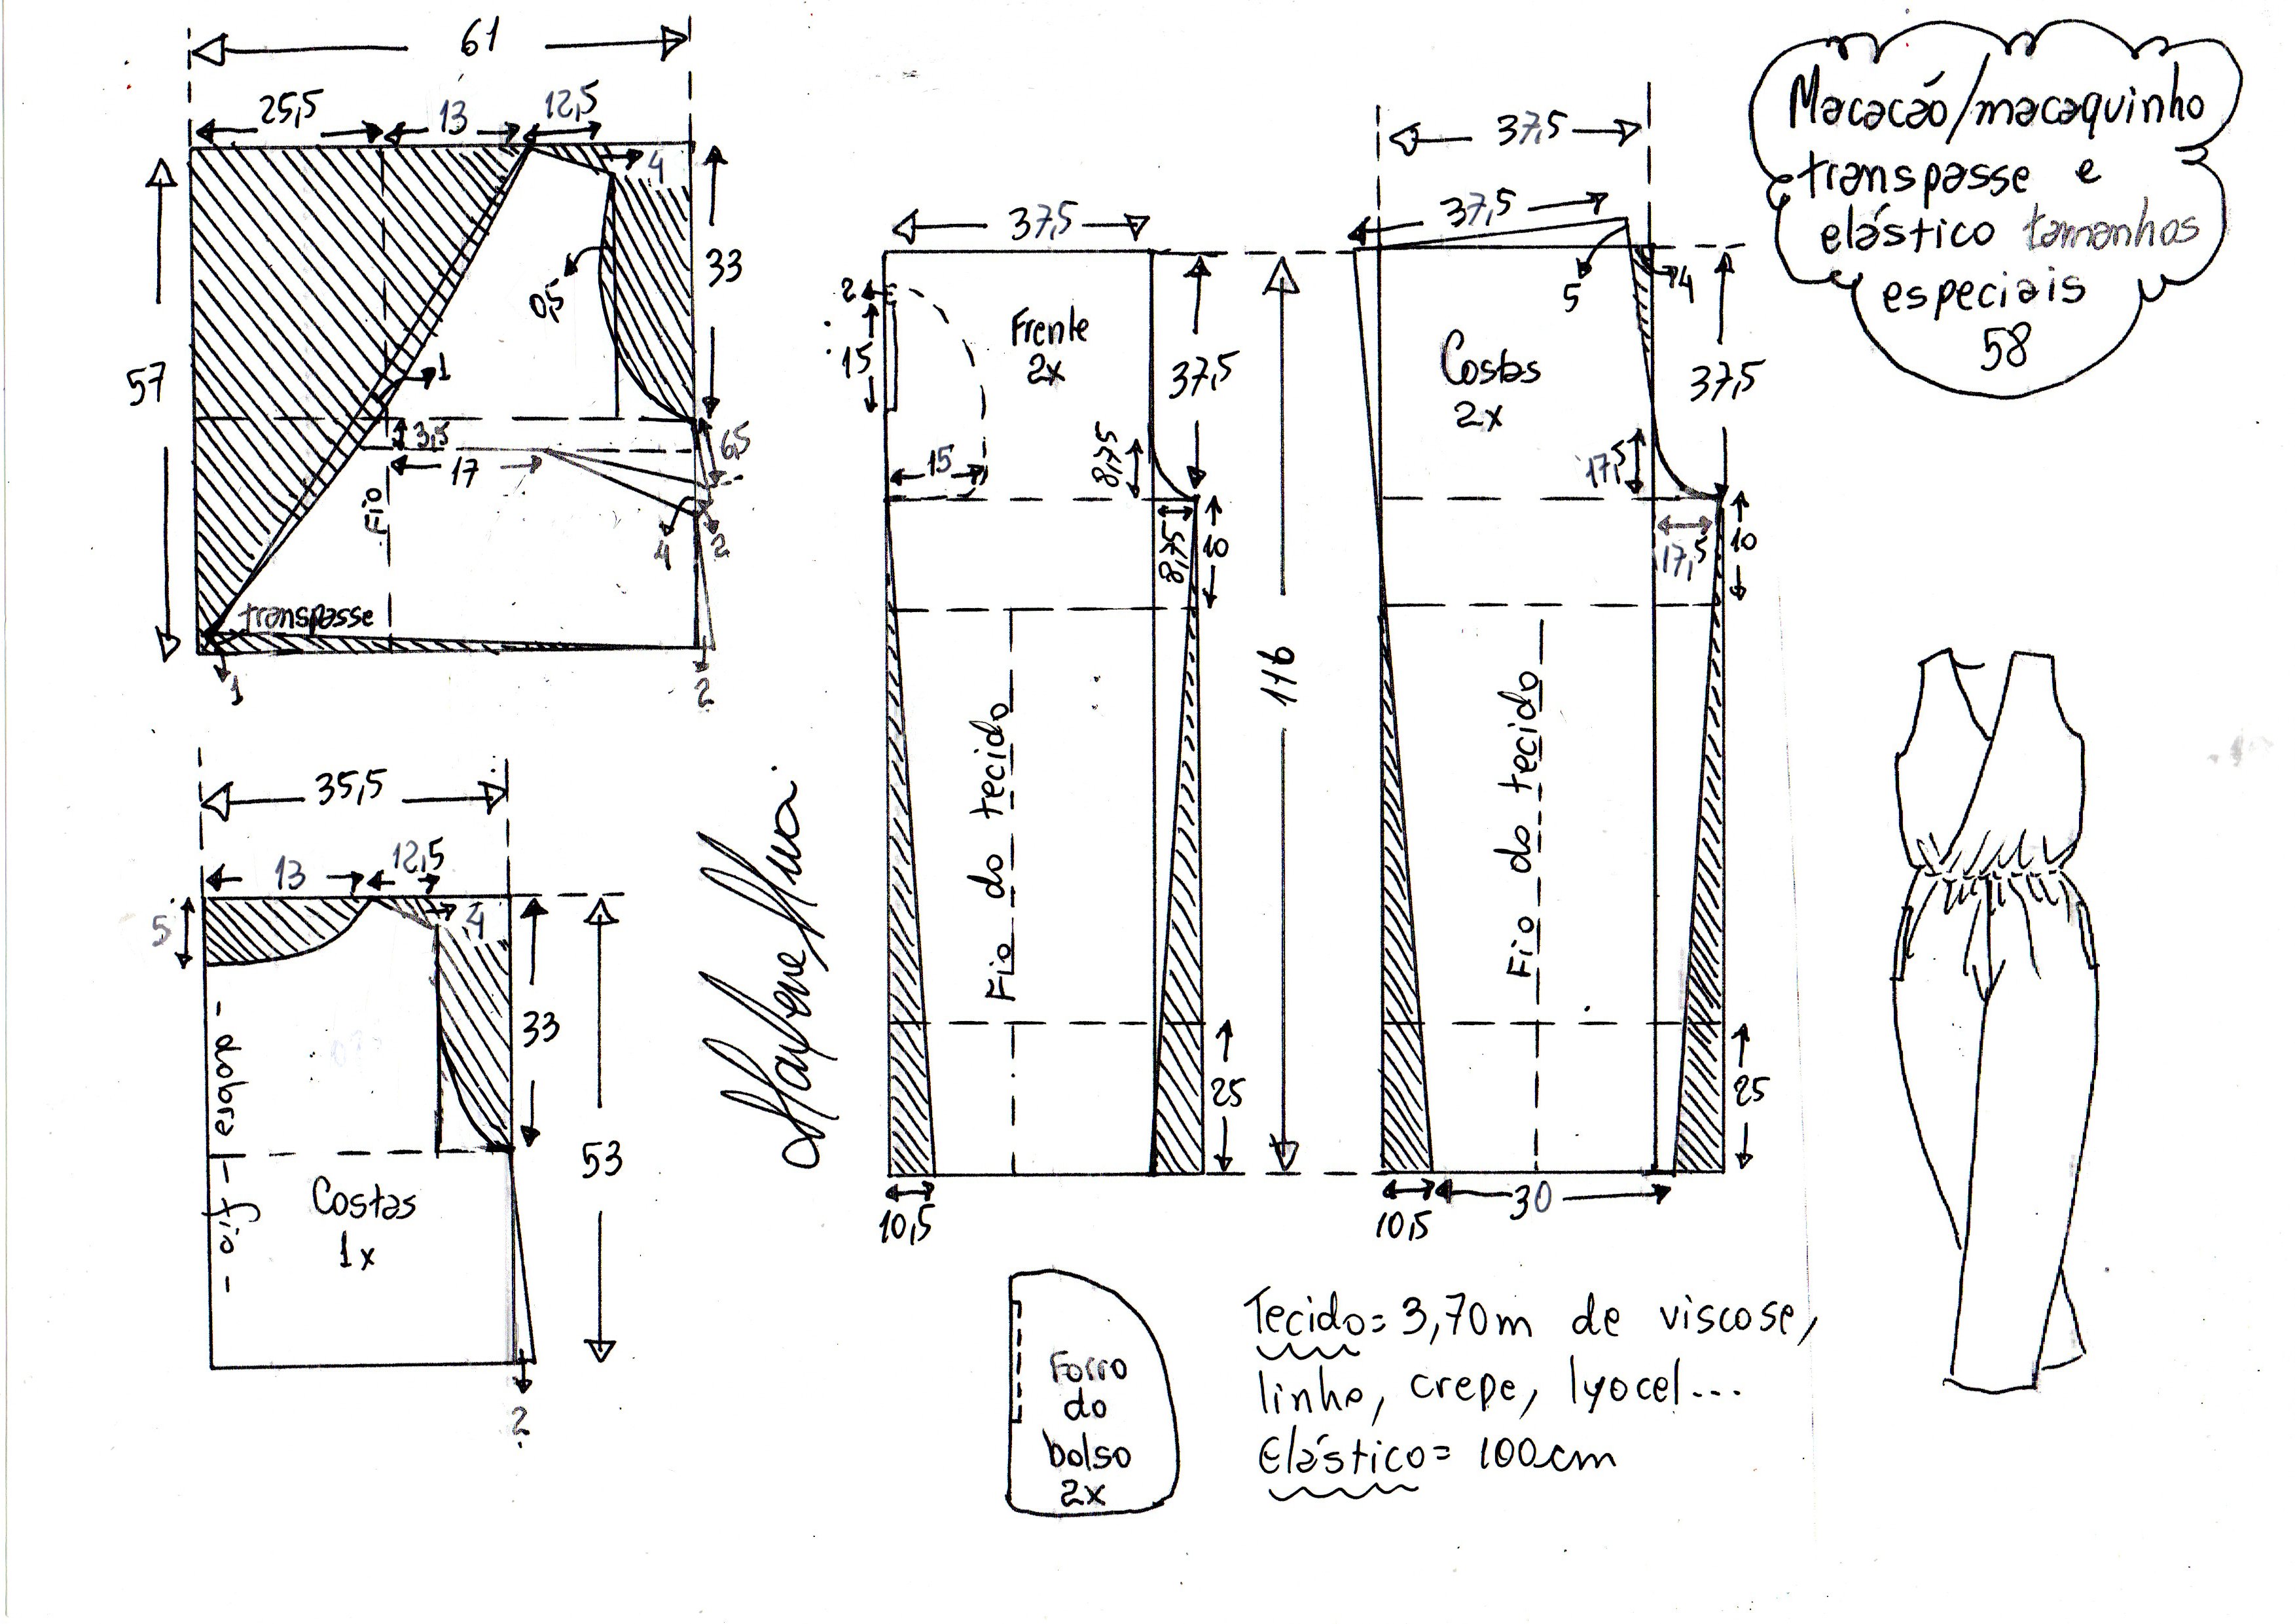 61
25,5
13
12,5
4
33
0,5
57
1
3,5
17
6,5
Fio
4
2
transpasse
1
2
35,5
13
12,5
4
5
33
53
- dobra - fio -
Costas
1x
2
37,5
2
15
Frente
2x
37,5
8,75
15
8,75
10
Fio do tecido
25
10,5
116
37,5
37,5
5
4
Costas
2x
37,5
17,5
17,5
10
Fio do tecido
25
10,5
30
Macacão/macaquinho
transpasse e
elástico tamanhos
especiais
58
Forro
do
bolso
2x
Tecido= 3,70m de viscose,
linho, crepe, lyocel...
Elástico= 100cm